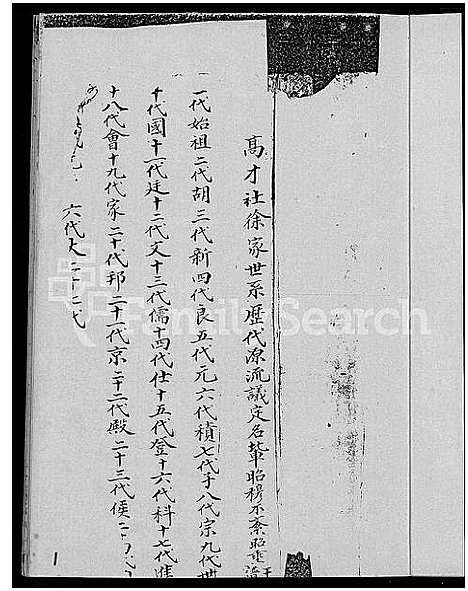 高才社徐家世系歷代源流議定名輩昭穆不紊
一代始祖二代胡三代新四代良五代元六代積七代子八代宗九代世
十代國十一代廷十二代文十三代儒十四代仕十五代登十六代科十七代進
十八代會十九代家二十代邦二十一代京二十二代殿二十三代侯
六代大二十二代
1
FamilySearch